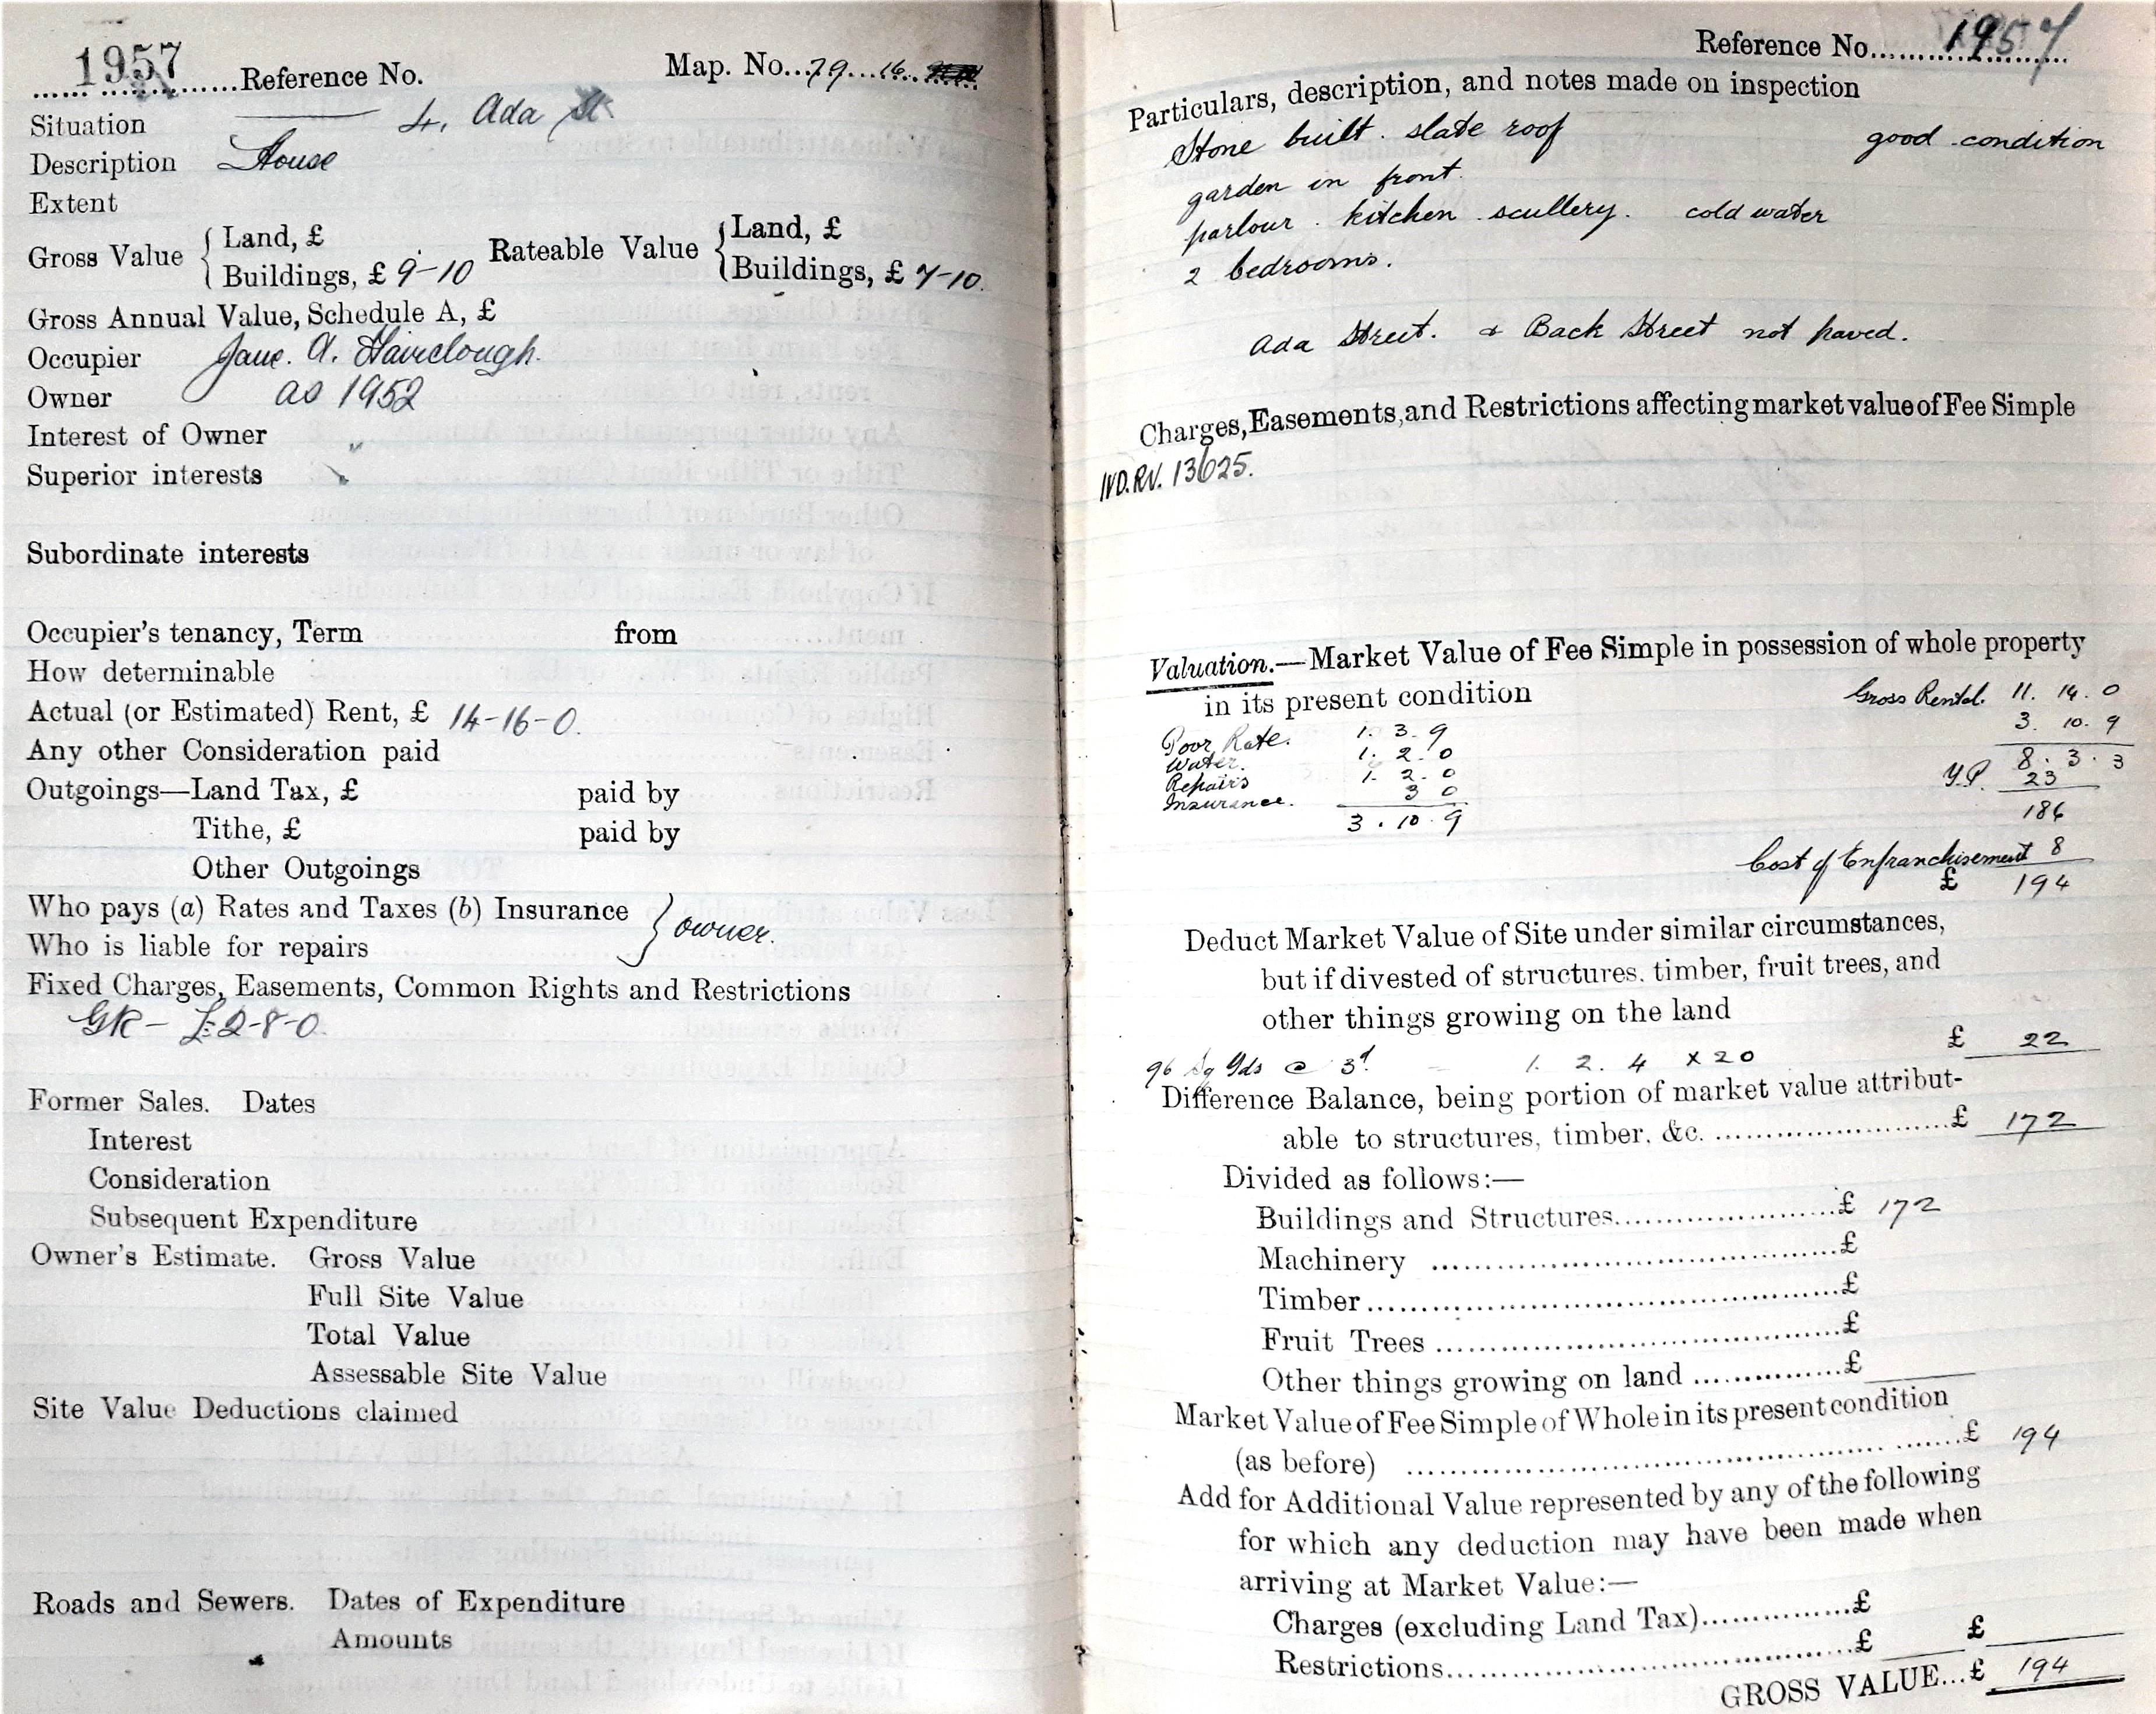 1957 Reference No. Map. No. 79 16
Situation 4, Ada St
Description House
Extent
Gross Value { Land, £ Rateable Value { Land, £
Buildings, £ 9-10 Buildings, £ 7-10
Gross Annual Value, Schedule A, £
Occupier Jane. A. Fairclough.
Owner as 1952
Interest of Owner
Superior interests
Subordinate interests
Occupier's tenancy, Term from
How determinable
Actual (or Estimated) Rent, £ 14-16-0.
Any other Consideration paid
Outgoings—Land Tax, £ paid by
Tithe, £ paid by
Other Outgoings
Who pays (a) Rates and Taxes (b) Insurance } owner.
Who is liable for repairs
Fixed Charges, Easements, Common Rights and Restrictions
GR - £2-8-0.
Former Sales. Dates
Interest
Consideration
Subsequent Expenditure
Owner's Estimate. Gross Value
Full Site Value
Total Value
Assessable Site Value
Site Value Deductions claimed
Roads and Sewers. Dates of Expenditure
Amounts
Reference No. 1957
Particulars, description, and notes made on inspection
Stone built. slate roof good condition
garden in front.
parlour. kitchen scullery. cold water
2 bedrooms.
Ada Street. & Back Street not paved.
Charges, Easements, and Restrictions affecting market value of Fee Simple
IVD.RV. 13625.
Valuation.—Market Value of Fee Simple in possession of whole property
in its present condition Gross Rental. 11. 14. 0
Poor Rate. 1. 3. 9 3. 10. 9
Water. 1. 2. 0 8. 3. 3
Repairs 1. 2. 0 Y.P. 23
Insurance. 3 0
3. 10. 9 186
Cost of Enfranchisement 8
£ 194
Deduct Market Value of Site under similar circumstances,
but if divested of structures. timber, fruit trees, and
other things growing on the land
96 Sq Yds @ 3d. - 1. 2. 4 x 20 £ 22
Difference Balance, being portion of market value attribut-
able to structures, timber, &c. £ 172
Divided as follows:—
Buildings and Structures £ 172
Machinery £
Timber £
Fruit Trees £
Other things growing on land £
Market Value of Fee Simple of Whole in its present condition
(as before) £ 194
Add for Additional Value represented by any of the following
for which any deduction may have been made when
arriving at Market Value:—
Charges (excluding Land Tax) £
Restrictions £ £
GROSS VALUE...£ 194